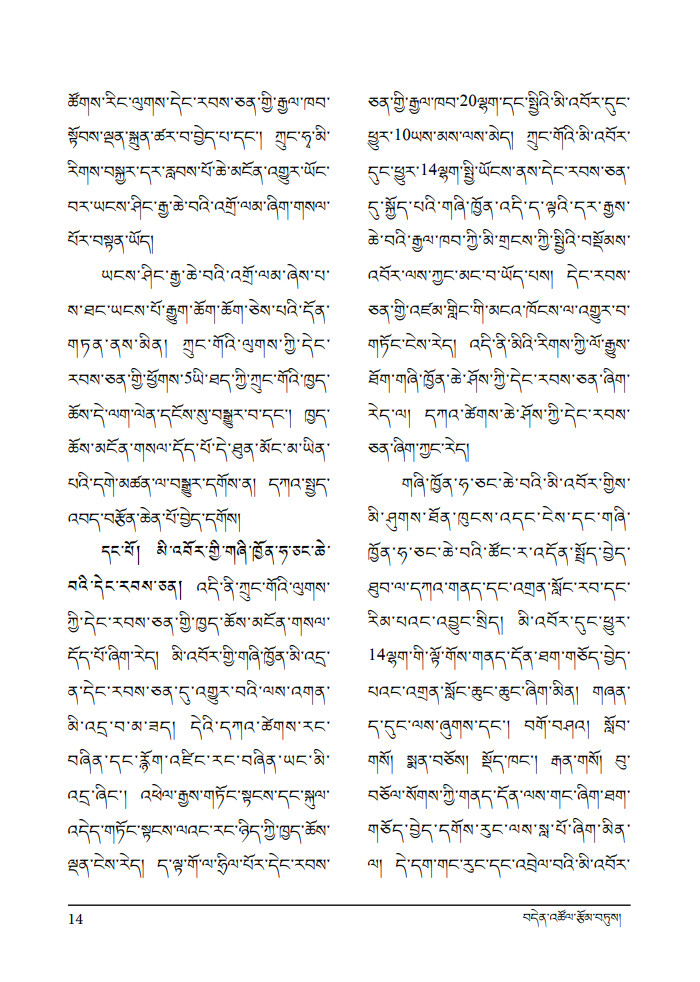 ཚོགས་རིང་ལུགས་དེང་རབས་ཅན་གྱི་རྒྱལ་ཁབ་
སྟོབས་ལྡན་སྐྲུན་ཚར་བ་བྱེད་པ་དང་། ཀྲུང་ཧྭ་མི་
རིགས་བསྐྱར་དར་རླབས་པོ་ཆེ་མངོན་འགྱུར་ཡོང་
བར་ཡངས་ཤིང་རྒྱ་ཆེ་བའི་འགྲོ་ལམ་ཞིག་གསལ་
པོར་བསྟན་ཡོད།
ཡངས་ཤིང་རྒྱ་ཆེ་བའི་འགྲོ་ལམ་ཞེས་པ་
ས་ཐང་ཡངས་པོ་རྒྱུག་ཆོག་ཆོག་ཅེས་པའི་དོན་
གཏན་ནས་མིན། ཀྲུང་གོའི་ལུགས་ཀྱི་དེང་
རབས་ཅན་གྱི་ཕྱོགས་5ཡི་ཐད་ཀྱི་ཀྲུང་གོའི་ཁྱད་
ཆོས་དེ་ལག་ལེན་དངོས་སུ་བསྒྱུར་བ་དང་། ཁྱད་
ཆོས་མངོན་གསལ་དོད་པོ་དེ་ཐུན་མོང་མ་ཡིན་
པའི་དགེ་མཚན་ལ་བསྒྱུར་དགོས་ན། དཀའ་སྤྱད་
འབད་བརྩོན་ཆེན་པོ་བྱེད་དགོས།
དང་པོ། མི་འབོར་གྱི་གཞི་ཁྱོན་ཧ་ཅང་ཆེ་
བའི་དེང་རབས་ཅན། འདི་ནི་ཀྲུང་གོའི་ལུགས་
ཀྱི་དེང་རབས་ཅན་གྱི་ཁྱད་ཆོས་མངོན་གསལ་
དོད་པོ་ཞིག་རེད། མི་འབོར་གྱི་གཞི་ཁྱོན་མི་འདྲ་
ན་དེང་རབས་ཅན་དུ་འགྱུར་བའི་ལས་འགན་
མི་འདྲ་བ་མ་ཟད། དེའི་དཀའ་ཚེགས་རང་
བཞིན་དང་རྙོག་འཛིང་རང་བཞིན་ཡང་མི་
འདྲ་ཞིང་། འཕེལ་རྒྱས་གཏོང་སྟངས་དང་སྐུལ་
འདེད་གཏོང་སྟངས་ལའང་རང་ཉིད་ཀྱི་ཁྱད་ཆོས་
ལྡན་ངེས་རེད། ད་ལྟ་གོ་ལ་ཧྲིལ་པོར་དེང་རབས་
ཅན་གྱི་རྒྱལ་ཁབ་20ལྷག་དང་སྤྱིའི་མི་འབོར་དུང་
ཕྱུར་10ཡས་མས་ལས་མེད། ཀྲུང་གོའི་མི་འབོར་
དུང་ཕྱུར་14ལྷག་སྤྱི་ཡོངས་ནས་དེང་རབས་ཅན་
དུ་སྐྱོད་པའི་གཞི་ཁྱོན་འདི་ད་ལྟའི་དར་རྒྱས་
ཆེ་བའི་རྒྱལ་ཁབ་ཀྱི་མི་གྲངས་ཀྱི་སྤྱིའི་བསྡོམས་
འབོར་ལས་ཀྱང་མང་བ་ཡོད་པས། དེང་རབས་
ཅན་གྱི་འཛམ་གླིང་གི་མངའ་ཁོངས་ལ་འགྱུར་བ་
གཏོང་ངེས་རེད། འདི་ནི་མིའི་རིགས་ཀྱི་ལོ་རྒྱུས་
ཐོག་གཞི་ཁྱོན་ཆེ་ཤོས་ཀྱི་དེང་རབས་ཅན་ཞིག་
རེད་ལ། དཀའ་ཚེགས་ཆེ་ཤོས་ཀྱི་དེང་རབས་
ཅན་ཞིག་ཀྱང་རེད།
གཞི་ཁྱོན་ཧ་ཅང་ཆེ་བའི་མི་འབོར་གྱིས་
མི་ཤུགས་ཐོན་ཁུངས་འདང་ངེས་དང་གཞི་
ཁྱོན་ཧ་ཅང་ཆེ་བའི་ཚོང་ར་འདོན་སྤྲོད་བྱེད་
ཐུབ་ལ་དཀའ་གནད་དང་འགྲན་སློང་རབ་དང་
རིམ་པའང་འབྱུང་སྲིད། མི་འབོར་དུང་ཕྱུར་
14ལྷག་གི་ལྟོ་གོས་གནད་དོན་ཐག་གཅོད་བྱེད་
པའང་འགྲན་སློང་ཆུང་ཆུང་ཞིག་མིན། གཞན་
ད་དུང་ལས་ཞུགས་དང་། བགོ་བཤའ། སློབ་
གསོ། སྨན་བཅོས། སྡོད་ཁང་། རྒན་གསོ། བུ་
བཅོལ་སོགས་ཀྱི་གནད་དོན་ལས་གང་ཞིག་ཐག་
གཅོད་བྱེད་དགོས་རུང་ལས་སླ་པོ་ཞིག་མིན་
ལ། དེ་དག་གང་རུང་དང་འབྲེལ་བའི་མི་འབོར་
14 བདེན་འཚོལ་རྩོམ་བཏུས།